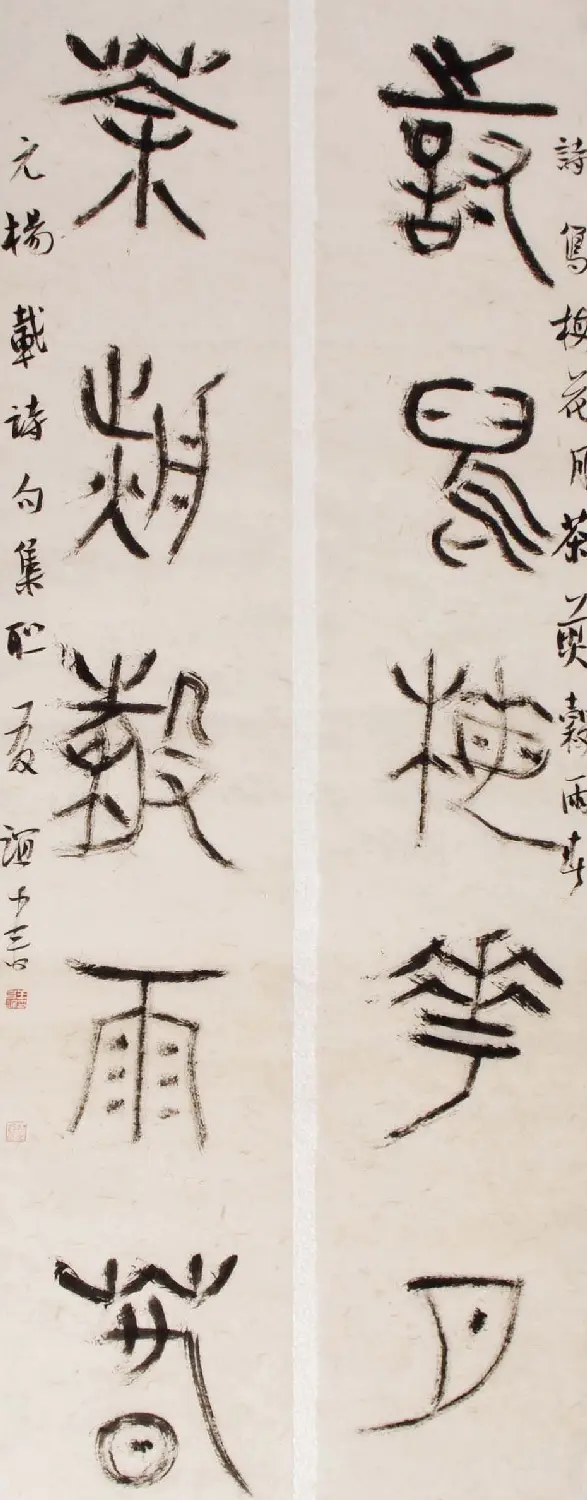 詩寫梅花月
茶煎穀雨春
詩寫梅花月茶煎穀雨春
元楊載詩句集聯